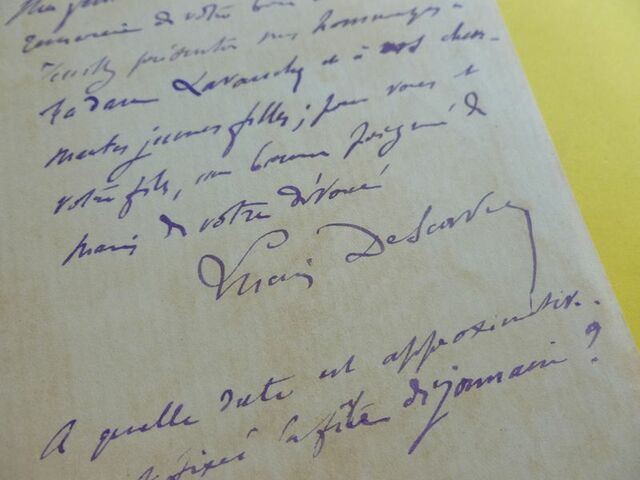 de votre bon
Veuillez présenter mes hommages à
Madame Lavauchy et à vos char-
mantes jeunes filles ; pour vous et
votre fils, une bonne poignée de
main de votre dévoué
A quelle date est approximative-
fixée la fête dijonnaise ?